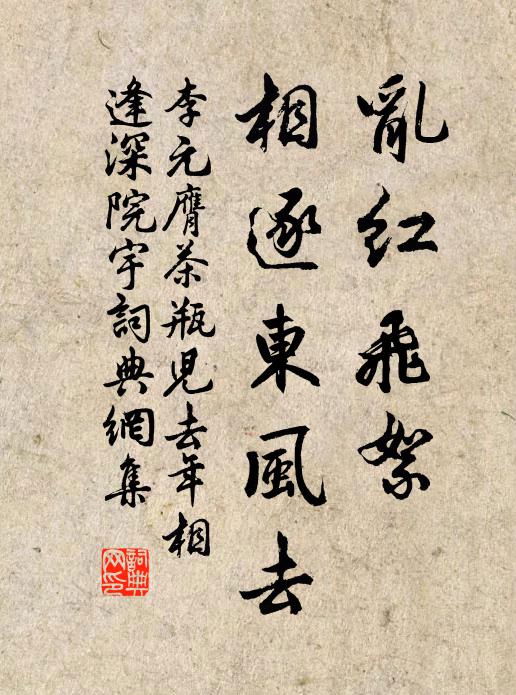 亂紅飛絮
相逐東風去
李元膺茶瓶兒去年相
逢深院宇詞典網集
詞典
网印